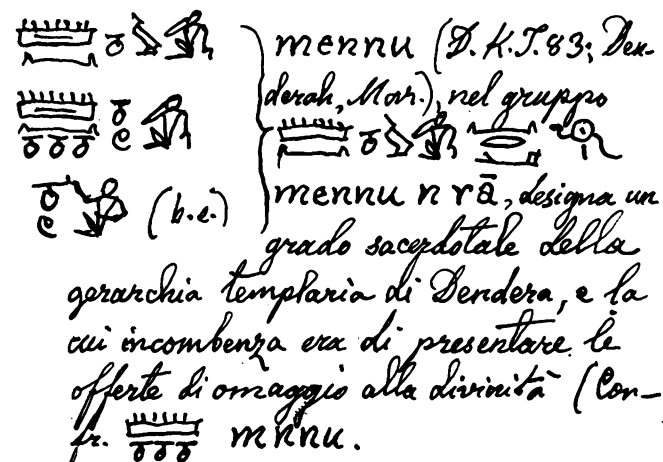 mennu (D. K. T. 83; Den-
derah, Mar.), nel gruppo
(b. e.) mennu n rā, designa un
grado sacerdotale della
gerarchia templaria di Dendera, e la
cui incombenza era di presentare le
offerte di omaggio alla divinità (Con-
fr. mnnu.